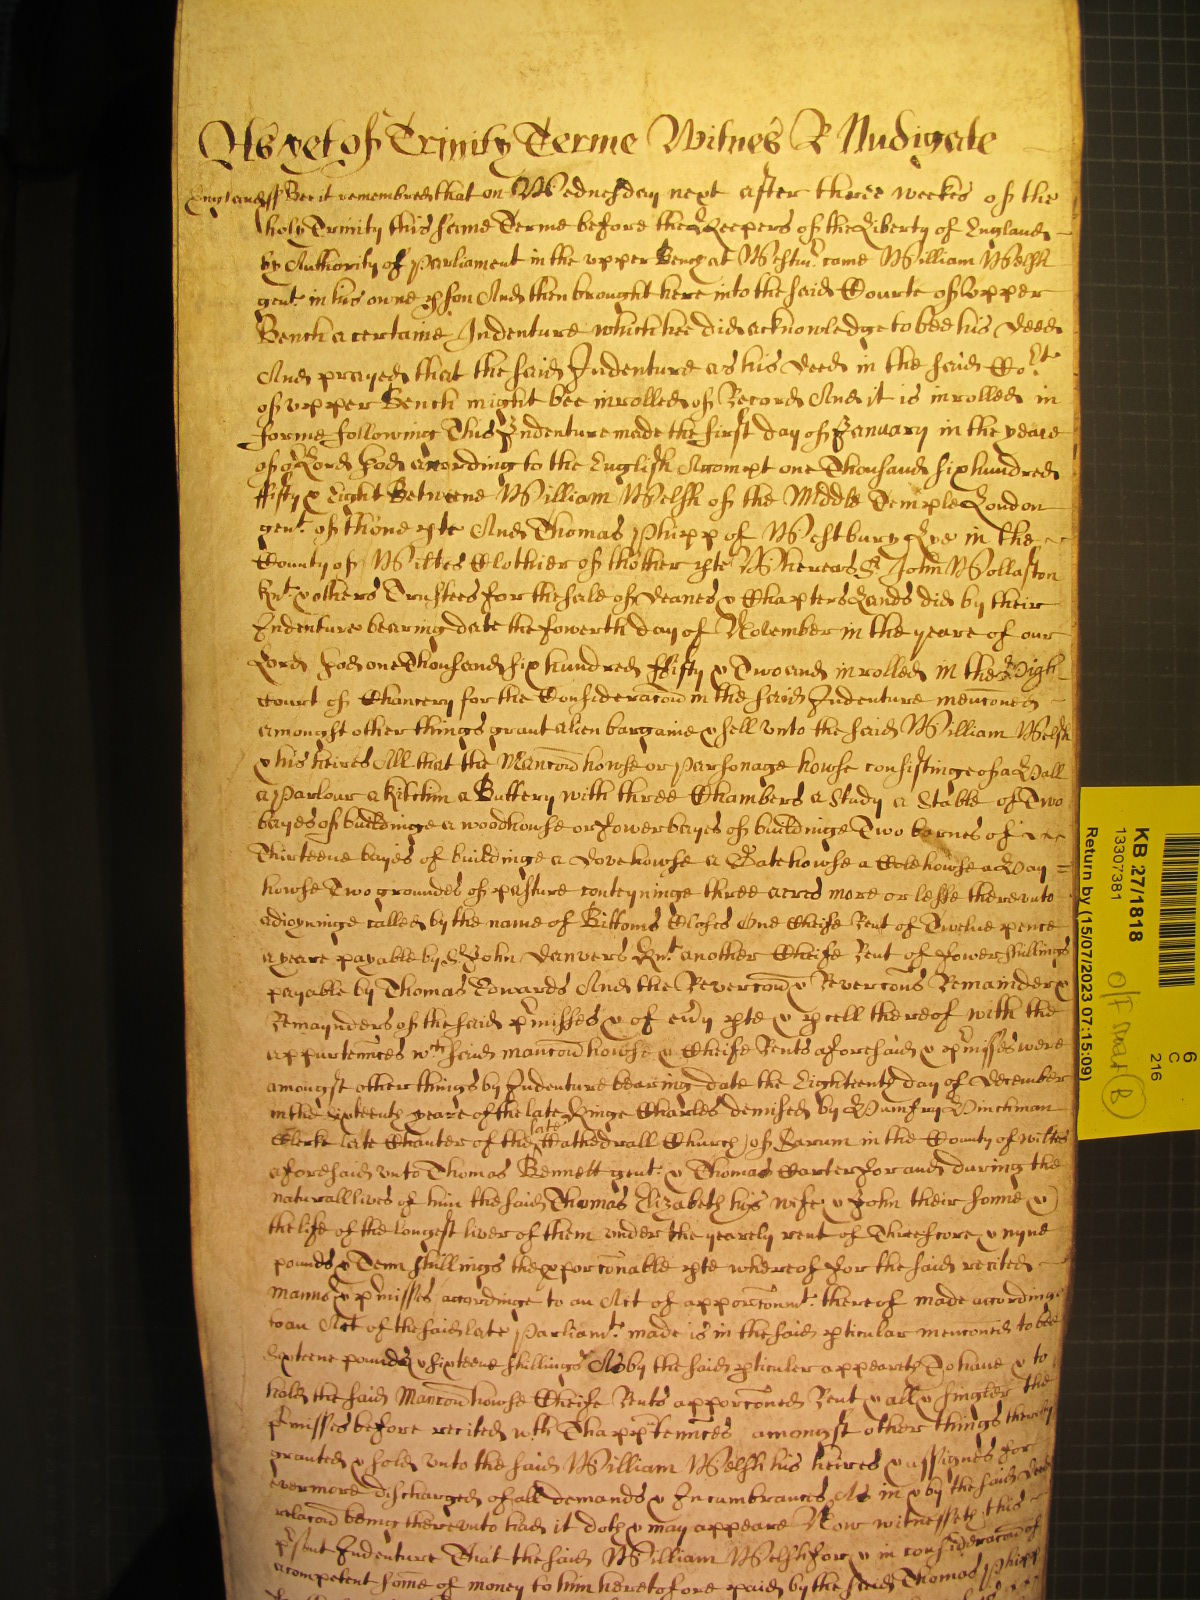 As yet of Trinity Terme Witnes R Nudigate
England ss Bee it remembred that on Wednesday next after three weekes of the
holy Trinity this same Terme before the Keepers of the Liberty of England
by Authority of Parliament in the upper Bench at Westmr. came William Welsh
gent. in his owne pson And then brought here into the said Courte of Upper
Bench a certaine Indenture which hee did acknowledge to bee his deed
And prayed that the said Indenture as his deed in the said Cort
of upper Bench might bee inrolled of Record And it is inrolled in
forme following This Indenture made the first day of January in the yeare
of or Lord God according to the English Accompt one Thousand six hundred
fifty & Eight Betweene William Welsh of the Middle Temple London
gent. of thone pte And Thomas Phipp of Westbury Lye in the
County of Wiltes Clothier of thother pte Whereas Sr John Wollaston
Knt. & others Trustees for the sale of Deanes & Chapters Lands did by their
Indenture bearing date the fowerth day of November in the yeare of our
Lord God one Thousand six hundred fifty & Two and inrolled in the High
Court of Chancery for the Consideracon in the said Indenture menconed
amongst other things grant alien bargaine & sell unto the said William Welsh
& his heires All that the Mancon howse or Parsonage howse consistinge of a Hall
a Parlour a Kitchin a Buttery with three Chambers a Study a Stable of Two
bayes of buildinge a woodhowse of fower bayes of buildinge Two barnes of
Thirteene bayes of buildinge a Dovehowse a Gatehowse a Colehowse a Hay =
howse Two groundes of pasture conteyninge three acres more or lesse thereunto
adioyninge called by the name of Bittoms Closes One Cheife Rent of Twelve pence
a yeare payable by Sr John Danvers Knt. another Cheife Rent of fower shillings
payable by Thomas Edwards And the Revercon & Revercons Remainder &
Remaynders of the said pmisses & of evy pte & pcell thereof with the
appurtennces wch said mancon howse & Cheife Rents aforesaid & pmisses were
amongst other things by Indenture bearing date the Eighteenth day of December
in the sixteenth yeare of the late Kinge Charles demised by Humfry Hinchman
Clerke late Chanter of the late Cathedrall Church of Sarum in the County of Wiltes
aforesaid unto Thomas Bennett gent. & Thomas Carter for and during the
naturall lives of him the said Thomas Elizabeth his wife & John their sonne &
the life of the Longest liver of them under the yearely rent of Threescore & nyne
pounds & Tenn shillings the pporconable pte whereof for the said recited
manns & pmisses accordinge to an Act of apporconmt. thereof made accordinge
to an Act of the said late Parliamt. made is in the said pticular menconed to bee
Sixteene pounds & sixteene shillings As by the said pticuler appeareth To have & to
hold the said Mancon howse Cheife Rents apporconed Rent & all & singler the
pmisses before recited wth Thapptennces amongst other things thereby
granted & sold unto the said William Welsh his heires & assignes for
evermore discharged of all demands & Incumbrances As in & by the said deed
relacon being thereunto had it doth & may appeare Now witnesseth this
psent Indenture That the said William Welsh for & in consideracon of
a competent some of money to him heretofore paid by the said Thomas Phipp
KB 27/1818
13307381
Return by (15/07/2023 07:15:09)
6
C
216